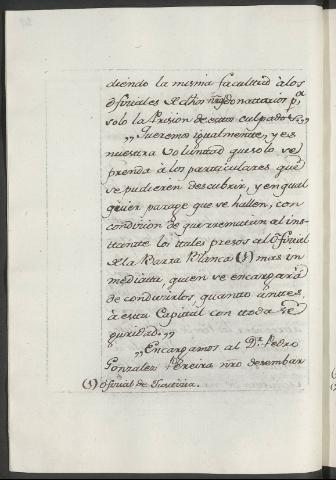 diendo la misma facultad à los
Oficiales de dhos nrô Donatarios pª
solo la Prision de estos culpados.,,
,,Queremos igualmente, y es
nuestra voluntad que solo se
prenda à los particulares que
se pudieren descubrir, y en qual
quier parage que se hallen, con
condicion de que remitan al ins
tante los tales presos al Oficial
de la Barra Blanca (1) mas in
mediata, quien se encargará
de conducirlos, quanto antes,
à esta Capital con toda se
guridad.,,
,,Encargamos al Dr. Pedro
Gonzalez Pereira nrô desembar
(1) Oficial de Justicia.